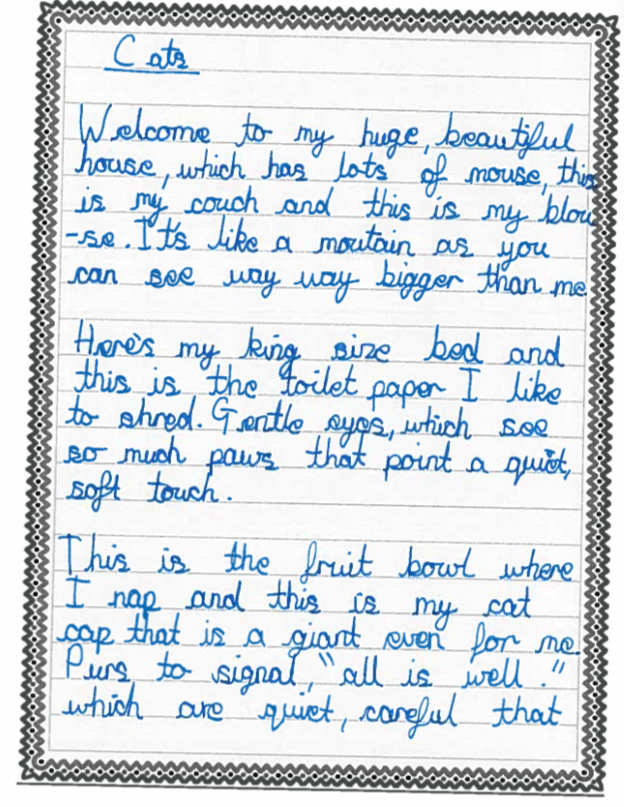 Cats
Welcome to my huge, beautiful
house, which has lots of mouse, this
is my couch and this is my blou
-se. It's like a moutain as you
can see way way bigger than me
Here's my king size bed and
this is the toilet paper I like
to shred. Gentle eyes, which see
so much paws that point a quiet,
soft touch.
This is the fruit bowl where
I nap and this is my cat
cap that is a giant even for me.
Purs to signal, "all is well."
which are quiet, careful that